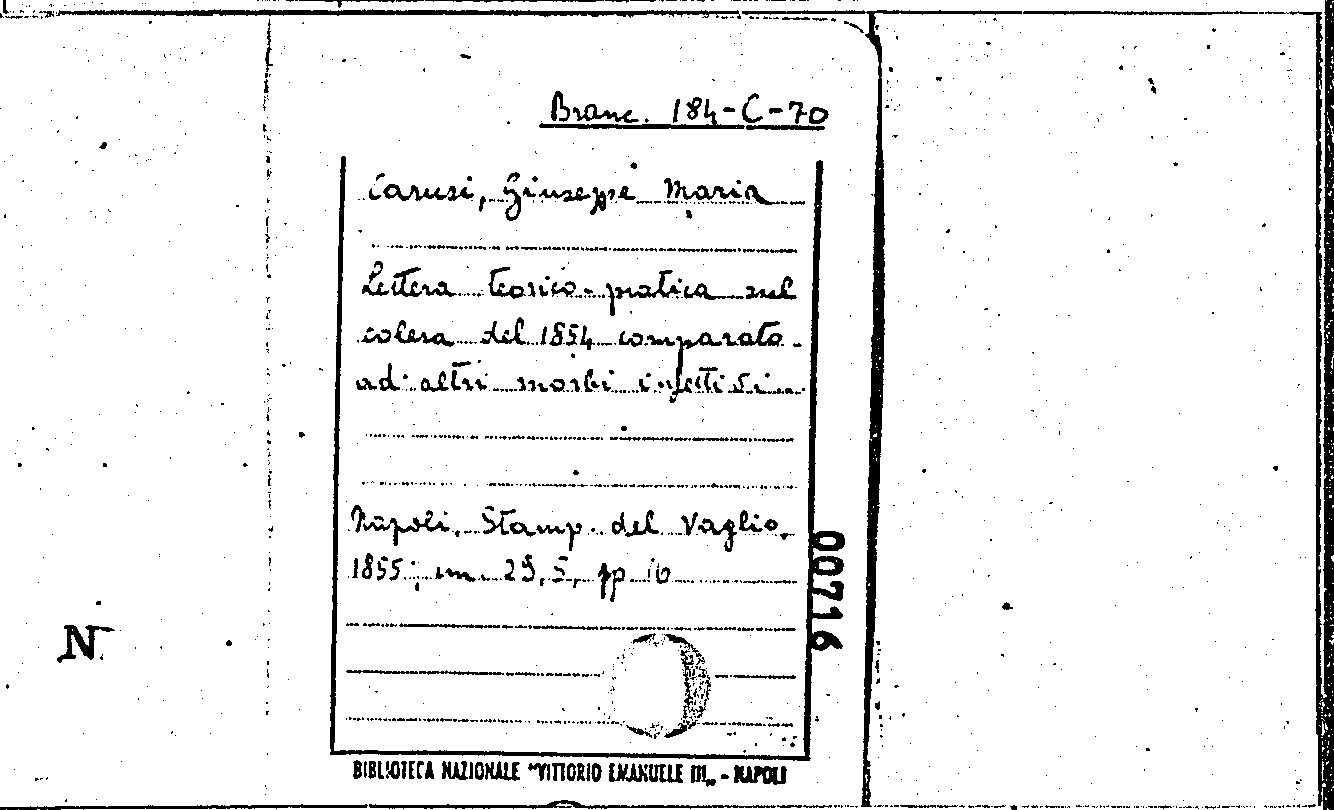 Branc. 184-C-70
Carusi, Giuseppe Maria
Lettera teorico-pratica sul
colera del 1854 comparato
ad altri morbi infettivi
Napoli, Stamp. del Vaglio,
1855; cm. 29,5, pp 16
00716
N
BIBLIOTECA NAZIONALE "VITTORIO EMANUELE III„ - NAPOLI